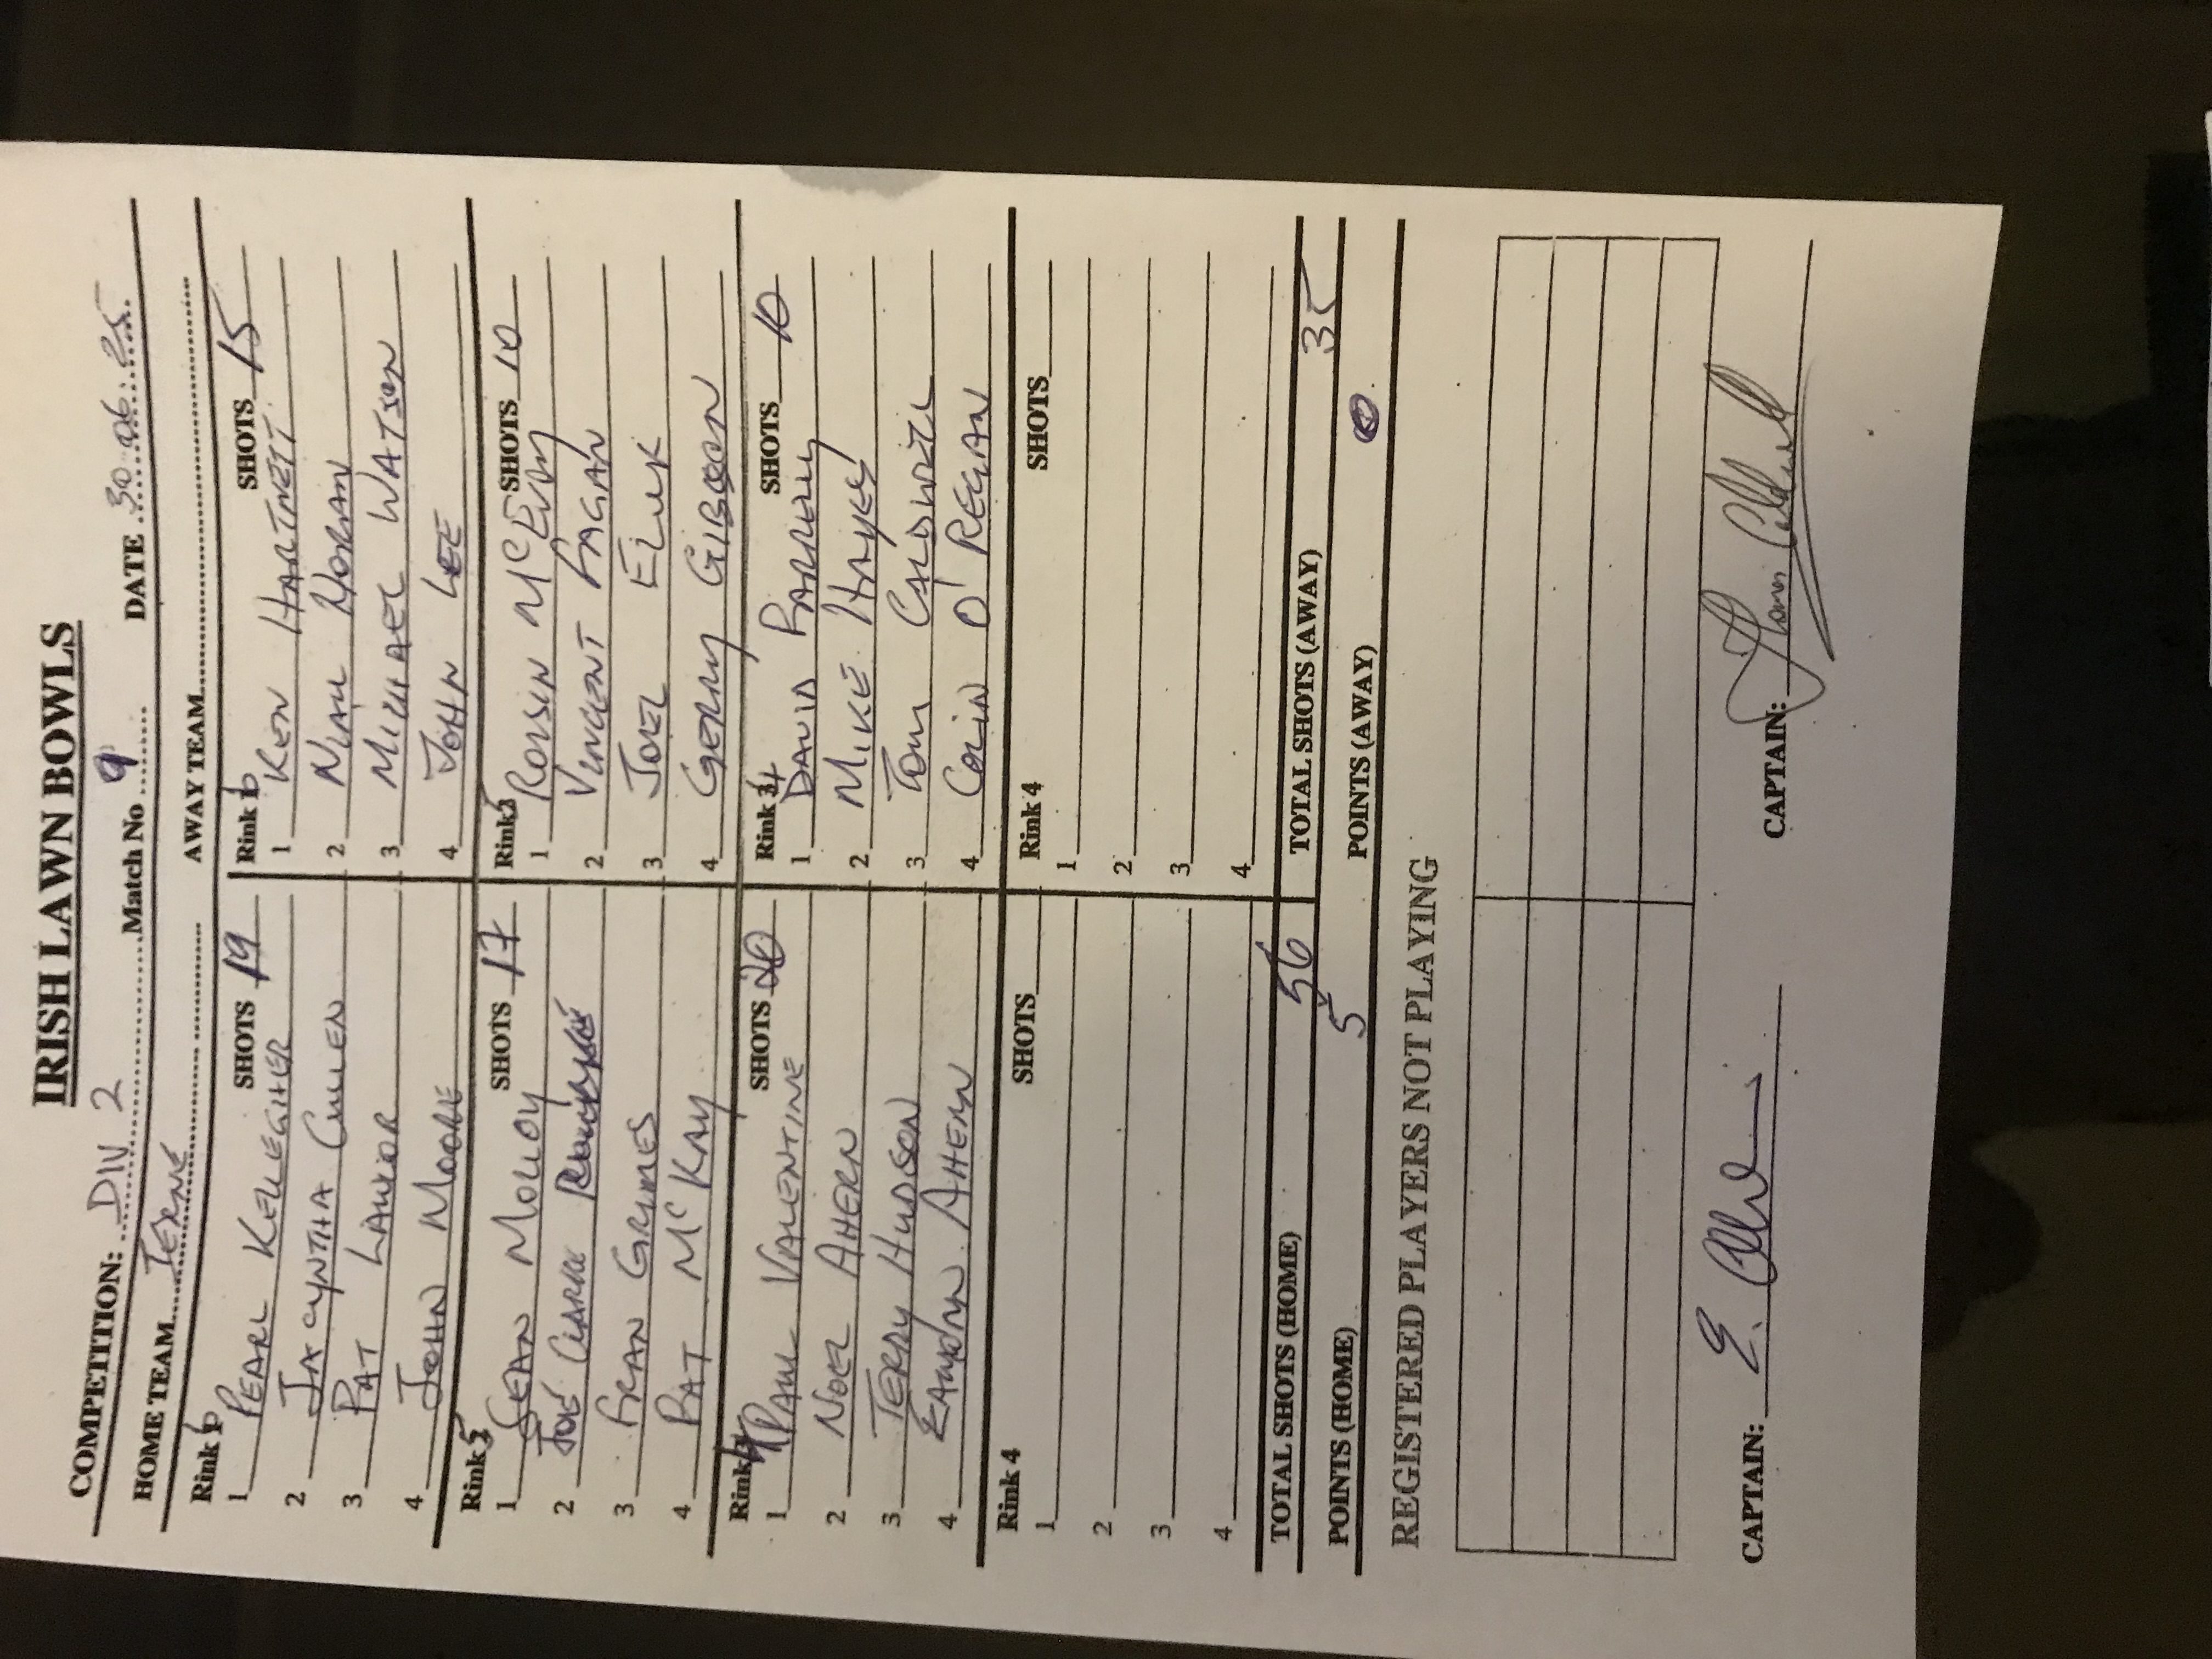 IRISH LAWN BOWLS
COMPETITION: DIV 2 Match No 9 DATE 30.06.25
HOME TEAM IERNE AWAY TEAM
Rink 6 SHOTS 19
1 PEARL KELLEGHER
2 JACYNTHA CULLEN
3 PAT LAWLOR
4 JOHN MOORE
Rink 6 SHOTS 15
1 KEN HARTNETT
2 NIALL HORAN
3 MICHAEL WATSON
4 JOHN LEE
Rink 5 SHOTS 17
1 SEAN MOLLOY
2 JOE CLARKE
3 FRAN GRIMES
4 PAT McKAY
Rink 5 SHOTS 10
1 ROISIN McEVOY
2 VINCENT FAGAN
3 JOEL
4 GERRY GIBSON
Rink 4 SHOTS 20
1 PAUL VALENTINE
2 NOEL AHERN
3 TERRY HUDSON
4 EAMONN AHERN
Rink 4 SHOTS 10
1 DAVID FARRELLY
2 MIKE HAYES
3 TOM CALDWELL
4 COLIN O'REGAN
Rink 4 SHOTS
1
2
3
4
Rink 4 SHOTS
1
2
3
4
TOTAL SHOTS (HOME) 56 TOTAL SHOTS (AWAY) 35
POINTS (HOME) 5 POINTS (AWAY) 0
REGISTERED PLAYERS NOT PLAYING
CAPTAIN: E. CAPTAIN: